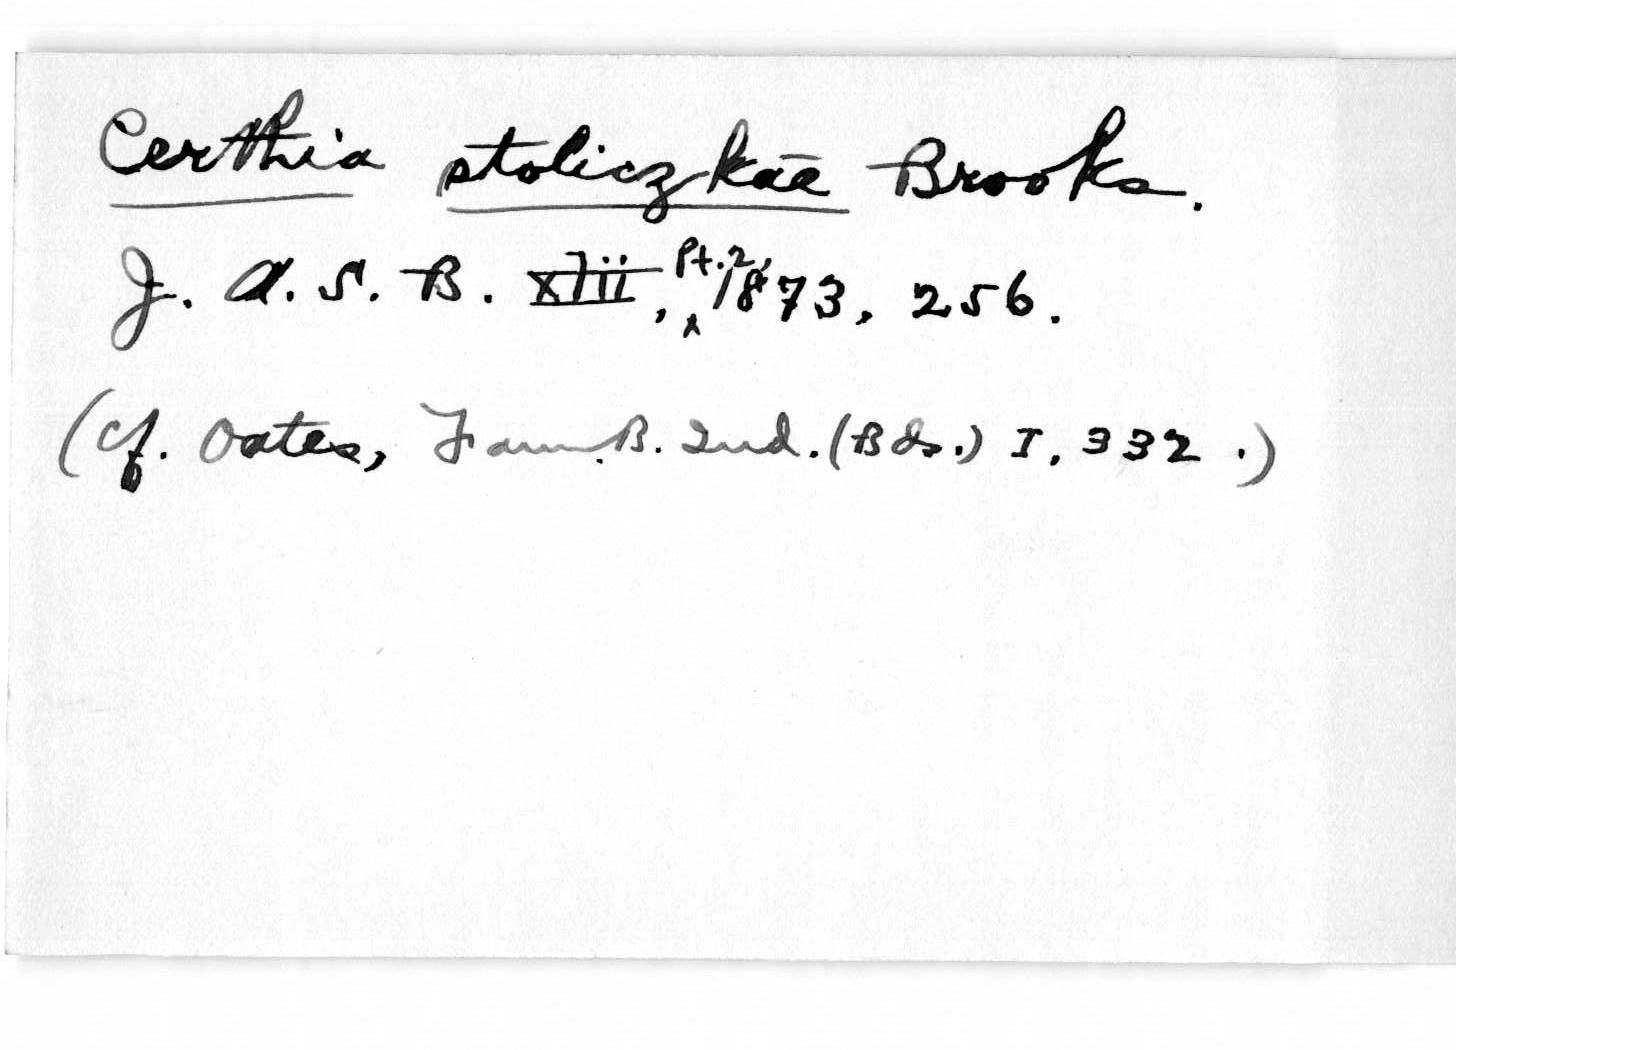 Certhia stoliczkae Brooks.
J. A. S. B. xlii, Pt. 2, 1873, 256.
(cf. Oates, Faun. B. Ind. (Bds.) I, 332.)